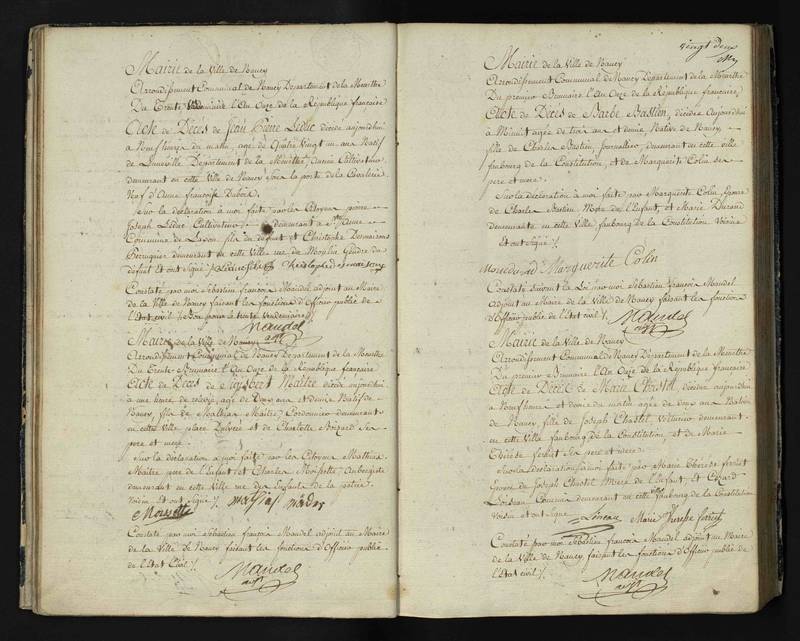 Mairie de la Ville de Nancy
Arrondissement Communal de Nancy Département de la Meurthe
Du Trente Vendemiaire l'An Onze de la République française
Acte de Décès de Jean Pierre Leduc décédé aujourdhui
à Neuf heures du matin, agé de Quatre Vingt un ans Natif
de Luneville Département de la Meurthe, Cultivateur
demeurant en cette Ville de Nancy
Veuf d'Anne françoise
Sur la déclaration à moi faite par les Citoyens
Joseph Leduc Cultivateur demeurant à Ste Anne
Commune de Laxou fils du défunt et Christophe
Perruquier demeurant en cette Ville rue du Moulin Gendre du
défunt et ont signé
Constaté par moi Sébastien françois Mandel adjoint au Maire
de la Ville de Nancy faisant les fonctions d'Officier public de
l'Etat civil
Mandel
adjt
Mairie de la Ville de Nancy
Arrondissement Communal de Nancy Département de la Meurthe
Du Trente l'An Onze de la République française
Acte de Décès de Maître décédé aujourdhui
à une heure de relevé, agé de ans et demie Natif de
Nancy, fils de Mathias Maître, Cordonnier demeurant
en cette Ville place et de Charlotte ses
pere et mere
Sur la déclaration à moi faite par les Citoyens Mathias
Maître pere de l'Enfant et Charles Aubergiste
demeurant en cette Ville rue des Enfants de la patrie
Voisin Et ont signé
Constaté par moi Sébastien françois Mandel adjoint au Maire
de la Ville de Nancy faisant les fonctions d'Officier public
de l'Etat Civil
Mandel
adjt
Vingt deux
Mairie de la Ville de Nancy
Arrondissement Communal de Nancy Département de la Meurthe
Du premier Brumaire l'An Onze de la République française
Acte de Décès de Barbe Bastien, décédée Aujourdhui
à Minuit agée de trois ans et demie Native de Nancy,
fille de Charles Bastien, Journallier, demeurant en cette ville
faubourg de la Constitution, et de Marguerite Colin ses
pere et mere
Sur la déclaration à moi faite par Marguerite Colin, femme
de Charles Bastien, Mere de l'Enfant, et Marie Durand
demeurante en cette Ville faubourg de la Constitution Voisine
Et ont signé
Marguerite Colin
Constaté suivant la Loi par moi Sébastien françois Mandel
adjoint au Maire de la Ville de Nancy faisant les fonctions
d'Officier public de l'Etat civil
Mandel
adjt
Mairie de la Ville de Nancy
Arrondissement Communal de Nancy Département de la Meurthe
Du premier Brumaire l'An Onze de la République française
Acte de Décès de Marie Chrestil, décédée aujourdhui
à Neuf heures et demie du matin agée de deux ans Native
de Nancy, fille de Joseph Chastel, Voiturier demeurant
en cette Ville faubourg de la Constitution, et de Marie
Thérèse ses pere et mere
Sur la Déclaration à moi faite par Marie Thérèse
femme de Joseph Chastel Mere de l'Enfant et
demeurant en cette ville faubourg de la Constitution
voisin et ont signé
Marie Therese
Constaté par moi Sébastien françois Mandel adjoint au Maire
de la Ville de Nancy, faisant les fonctions d'Officier public de
l'Etat civil
Mandel
adjt